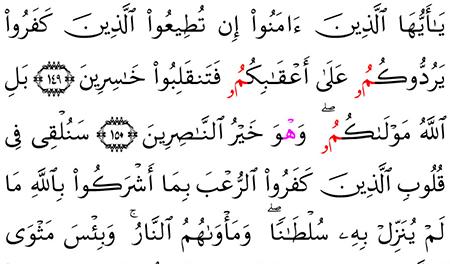 يَـٰٓأَيُّهَا ٱلَّذِينَ ءَامَنُوٓا۟ إِن تُطِيعُوا۟ ٱلَّذِينَ كَفَرُوا۟
يَرُدُّوكُمُۥ عَلَىٰٓ أَعْقَـٰبِكُمُۥ فَتَنقَلِبُوا۟ خَـٰسِرِينَ ﴿١٤٩﴾ بَلِ
ٱللَّهُ مَوْلَىٰكُمُۥ ۖ وَهْوَ خَيْرُ ٱلنَّـٰصِرِينَ ﴿١٥٠﴾ سَنُلْقِى فِى
قُلُوبِ ٱلَّذِينَ كَفَرُوا۟ ٱلرُّعْبَ بِمَآ أَشْرَكُوا۟ بِٱللَّهِ مَا
لَمْ يُنَزِّلْ بِهِۦ سُلْطَـٰنًا ۖ وَمَأْوَىٰهُمُ ٱلنَّارُ ۚ وَبِئْسَ مَثْوَى